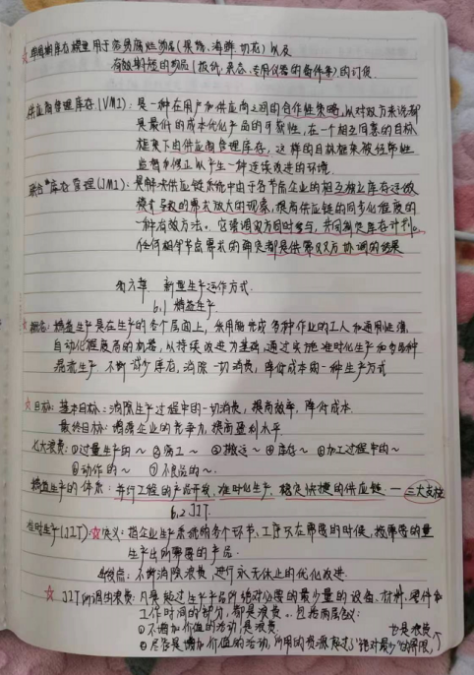 ☆ 单周期库存模型用于容易腐烂物品(果物、海鲜、切花)以及
有效期短的物品(报纸、杂志、专用仪器的备件等)的订货
供应商管理库存(VMI):是一种在用户和供应商之间的合作性策略,以对双方来说都
是最低的成本优化产品的可获性,在一个相互同意的目标
框架下由供应商管理库存,这样的目标框架被经常性
监督和修正以产生一种连续改进的环境
联合库存管理(JMI):是解决供应链系统中由于各节点企业的相互独立库存运做
模式导致的需求放大的现象,提高供应链的同步化程度的
一种有效方法。它强调双方同时参与,共同制定库存计划。
任何相邻节点需求的确定都是供需双方协调的结果
第六章 新型生产运作方式
6.1 精益生产
☆概念:精益生产是在生产的各个层面上,采用能完成多种作业的工人和通用性强,
自动化程度高的机器,以持续改进为基础,通过实施准时化生产和多品种
混流生产 不断减少库存,消除一切消费,降低成本的一种生产方式
☆目标:基本目标:消除生产过程中的一切消费,提高效率,降低成本.
最终目标:增强企业的竞争力,提高盈利水平
七大浪费:①过量生产的~ ②窝工~ ③搬运~ ④库存~ ⑤加工过程中的~
⑥动作的~ ⑦不良品的~.
精益生产的体系:并行工程的产品开发、准时化生产、稳定快捷的供应链 — 三大支柱
6.2 JIT
准时生产(JIT) ☆定义:指企业生产系统的各个环节、工序只在需要的时候,按需要的量
生产出所需要的产品.
特点:不断消除浪费,进行永无休止的优化改进.
☆ JIT所谓的浪费:凡是超过生产产品所绝对必要的最少量的设备、材料、零件和
工作时间的部分,都是浪费.包括两层含义:
①不增加价值的活动,是浪费. 也是浪费
②尽管是增加价值的活动,所用的资源超过"绝对最少"的界限,